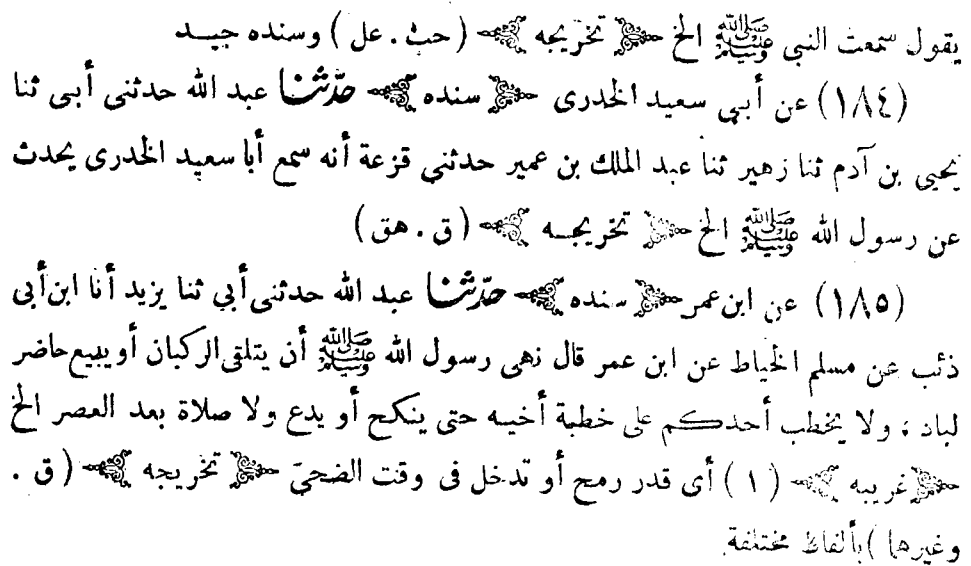 يقول سمعت النبي ﷺ الخ ﴿ تخريجه ﴾ (حث . عل) وسنده جيد
(١٨٤) عن أبي سعيد الخدرى ﴿ سنده ﴾ حدثنا عبد الله حدثنى أبى ثنا
يحيى بن آدم ثنا زهير ثنا عبد الملك بن عمير حدثنى قزعة أنه سمع أبا سعيد الخدرى يحدث
عن رسول الله ﷺ الخ ﴿ تخريجه ﴾ (ق . هق)
(١٨٥) عن ابن عمر ﴿ سنده ﴾ حدثنا عبد الله حدثنى أبي ثنا يزيد أنا ابن أبى
ذئب عن مسلم الخياط عن ابن عمر قال نهى رسول الله ﷺ أن يتلقى الركبان أو يبيع حاضر
لباد ، ولا يخطب أحدكم على خطبة أخيه حتى ينكح أو يدع ولا صلاة بعد العصر الخ
﴿ غريبه ﴾ (١) أى قدر رمح أو تدخل فى وقت الضحىَ ﴿ تخريجه ﴾ (ق .
وغيرها) بألفاظ مختلفة